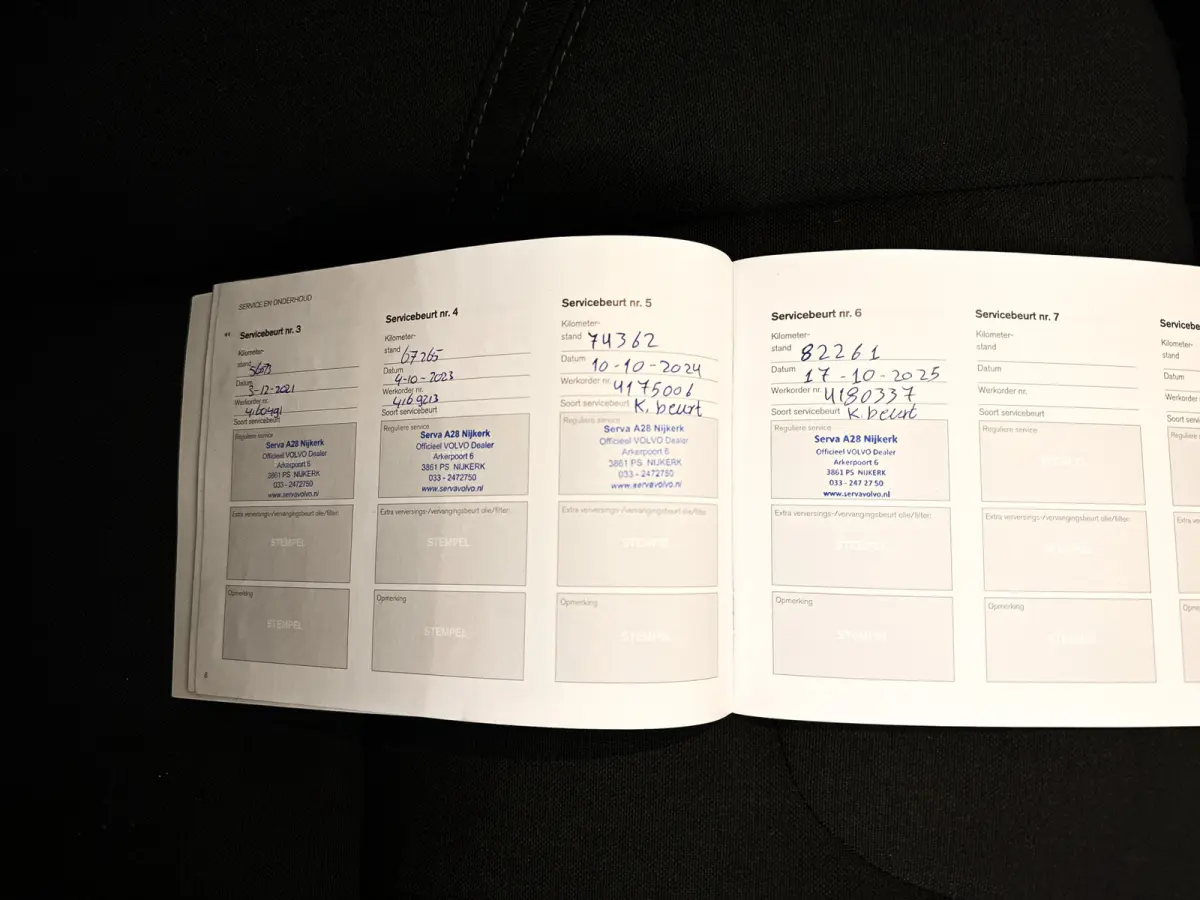 SERVICE EN ONDERHOUD
Servicebeurt nr. 3
Kilometer-
stand
Datum 3-12-2021
Werkorder nr.
4160491
Soort servicebeurt
Reguliere service
Serva A28 Nijkerk
Officieel VOLVO Dealer
Arkerpoort 6
3861 PS NIJKERK
033 - 2472750
www.servavolvo.nl
Extra verversings-/vervangingsbeurt olie/filter:
STEMPEL
Opmerking
STEMPEL
8
Servicebeurt nr. 4
Kilometer-
stand 67265
Datum
4-10-2023
Werkorder nr.
4169213
Soort servicebeurt
Reguliere service
Serva A28 Nijkerk
Officieel VOLVO Dealer
Arkerpoort 6
3861 PS NIJKERK
033 - 2472750
www.servavolvo.nl
Extra verversings-/vervangingsbeurt olie/filter:
STEMPEL
Opmerking
STEMPEL
Servicebeurt nr. 5
Kilometer-
stand 74362
Datum 10-10-2024
Werkorder nr. 4175006
Soort servicebeurt K. beurt
Reguliere service
Serva A28 Nijkerk
Officieel VOLVO Dealer
Arkerpoort 6
3861 PS NIJKERK
033 - 2472750
www.servavolvo.nl
Extra verversings-/vervangingsbeurt olie/filter:
STEMPEL
Opmerking
STEMPEL
Servicebeurt nr. 6
Kilometer-
stand 82261
Datum 17-10-2025
Werkorder nr. 4180337
Soort servicebeurt K. beurt
Reguliere service
Serva A28 Nijkerk
Officieel VOLVO Dealer
Arkerpoort 6
3861 PS NIJKERK
033 - 247 27 50
www.servavolvo.nl
Extra verversings-/vervangingsbeurt olie/filter:
STEMPEL
Opmerking
STEMPEL
Servicebeurt nr. 7
Kilometer-
stand
Datum
Werkorder nr.
Soort servicebeurt
Reguliere service
STEMPEL
Extra verversings-/vervangingsbeurt olie/filter:
STEMPEL
Opmerking
STEMPEL
Servicebe
Kilometer-
stand
Datum
Werkorder
Soort serv
Reguliere
Extra ve
Opme